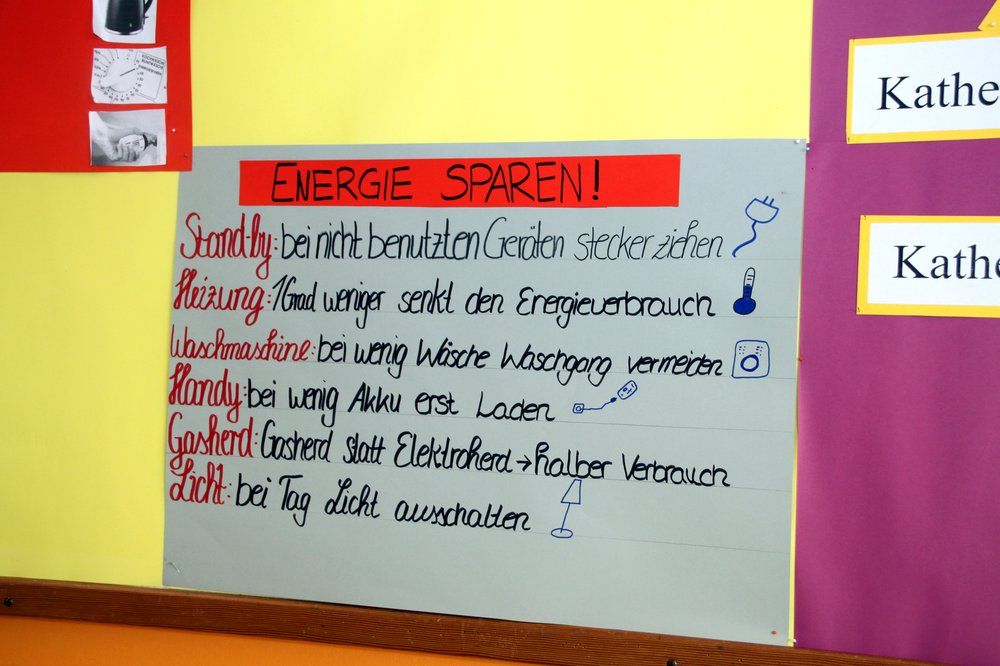 ENERGIE SPAREN!
Stand-by: bei nicht benutzten Geräten stecker ziehen
Heizung: 1 Grad weniger senkt den Energieverbrauch
Waschmaschine: bei wenig Wäsche Waschgang vermeiden
Handy: bei wenig Akku erst Laden
Gasherd: Gasherd statt Elektroherd → halber Verbrauch
Licht: bei Tag Licht ausschalten
Kathe
Kathe